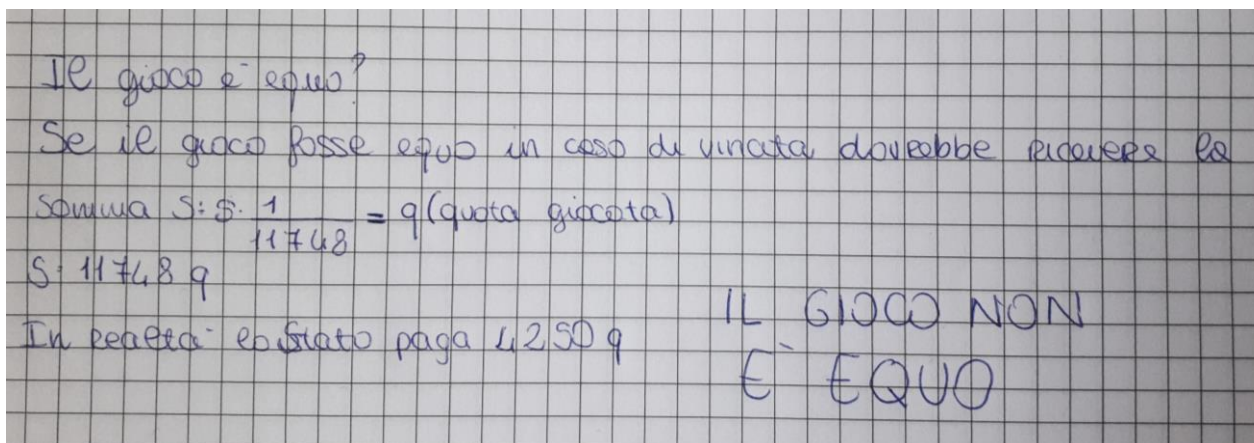 Il gioco è equo?
Se il gioco fosse equo in caso di vincata dovrebbe ricevere la
somma S: S · 1/11748 = q (quota giocata)
S: 11748 q
In realtà lo Stato paga 4250 q
IL GIOCO NON
È EQUO